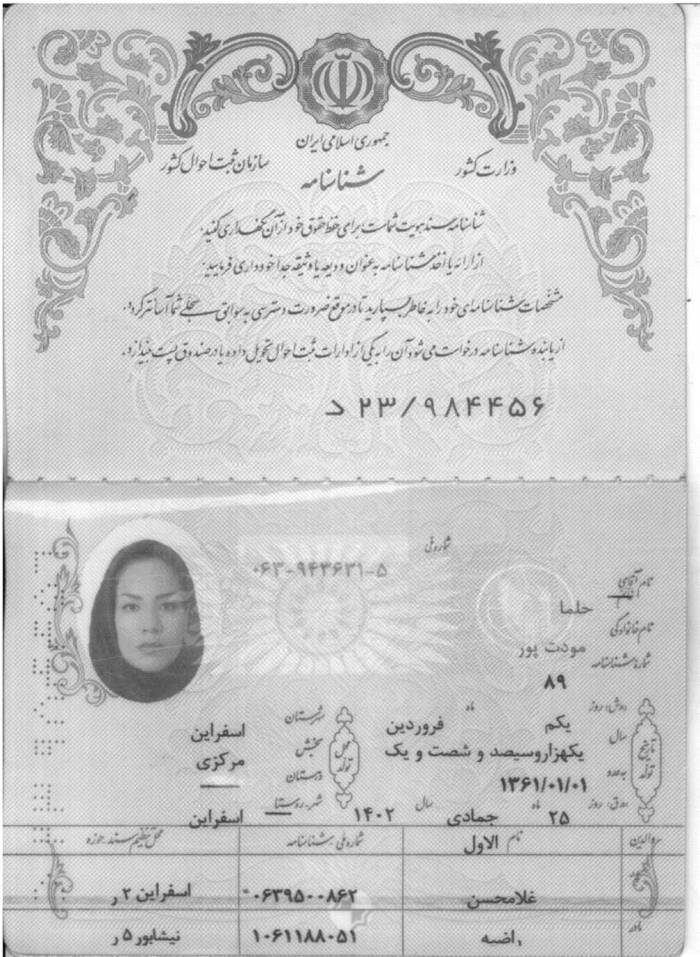 جمهوری اسلامی ایران
وزارت کشور
سازمان ثبت احوال کشور
شناسنامه
شناسنامه سند هویت شماست برای حفظ حقوق خود از آن نگهداری کنید.
از ارائه یا اخذ شناسنامه به عنوان ودیعه یا وثیقه جداً خودداری فرمایید.
مشخصات شناسنامه‌ای خود را به خاطر بسپارید تا در موقع ضرورت دسترسی به سوابق سجلی شما آسانتر گردد.
از یابنده شناسنامه درخواست می‌شود آن را به یکی از ادارات ثبت احوال تحویل داده یا در صندوق پست بیندازد.
د ۲۳/۹۸۴۴۵۶
شماره ملی
۰۶۳-۹۴۳۶۳۱-۵
نام
حلما
نام خانوادگی
مودت پور
شماره شناسنامه
۸۹
تاریخ تولد
روز یکم ماه فروردین
سال یکهزاروسیصد و شصت و یک
۱۳۶۱/۰۱/۰۱
روز ۲۵ ماه جمادی الاول سال ۱۴۰۲
محل تولد
شهرستان اسفراین
بخش مرکزی
دهستان
شهر، روستا اسفراین
والدین نام شماره ملی شناسنامه محل تنظیم سند، حوزه
پدر غلامحسن ۰۶۳۹۵۰۰۸۶۲ اسفراین ۲ر
مادر راضیه ۱۰۶۱۱۸۸۰۵۱ نیشابور ۵ ر